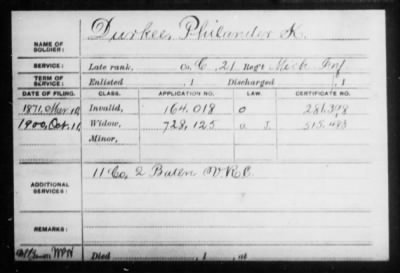 NAME OF SOLDIER: Durkee, Philander K.
SERVICE: Late rank, Co. C, 21 Reg't Mich Inf
TERM OF SERVICE: Enlisted , 1 Discharged , 1
DATE OF FILING. CLASS. APPLICATION NO. LAW. CERTIFICATE NO.
1871, Mar 10, Invalid, 164.018 o
1900, Oct. 11 Widow, 728,125
Minor,
ADDITIONAL SERVICES: 11 Co, 2 Bat'n V.R.C.
REMARKS:
Died , 1 , at